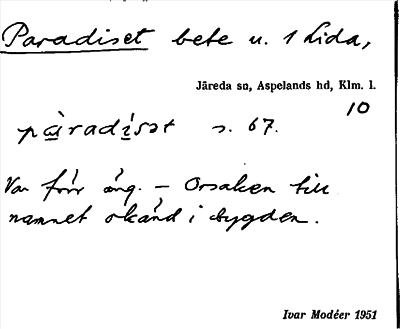 Paradiset bete u. 1 Lida,
Järeda sn, Aspelands hd, Klm. l.
10
pàradı̀sət s. 67.
Var förr äng. – Orsaken till
namnet okänd i bygden.
Ivar Modéer 1951